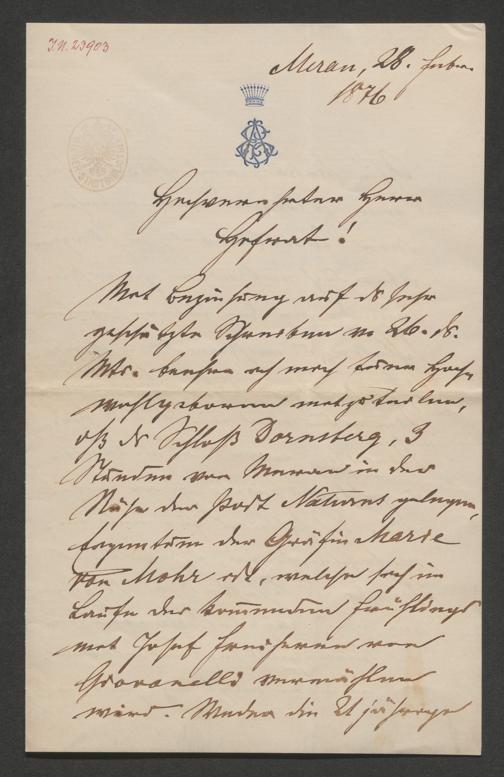 I.N. 23903
Meran, 28. Febr.
1876
Hochverehrter Herr
Hofrat!
Mit Beziehung auf ds sehr
geschätzte Schreiben v. 26. ds.
Mts. beehre ich mich Euer Hoch-
wohlgeboren mitzuteilen,
dß ds Schloß Dornsberg, 3
Stunden von Meran in der
Nähe der Post Naturns gelegen,
Eigentum der Gräfin Marie
von Mohr ist, welche sich im
Laufe des kommenden Frühlings
mit Josef Freiherrn von
Giovanelli vermählen
wird. Weder die 21 jährige